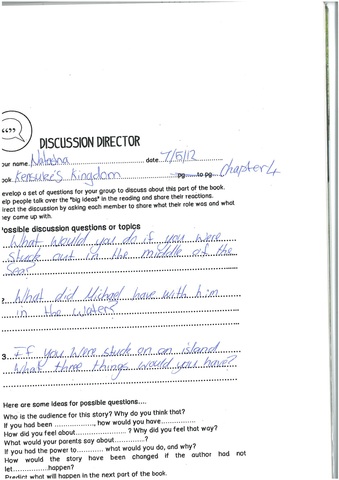 DISCUSSION DIRECTOR
our name Natasha date 7/5/12
ook Kensuke's Kingdom pg to pg Chapter 4
evelop a set of questions for your group to discuss about this part of the book.
elp people talk over the "big ideas" in the reading and share their reactions.
irect the discussion by asking each member to share what their role was and what
hey came up with.
ossible discussion questions or topics
What would you do if you were
stuck out in the middle of the
sea?
What did Michael have with him
in the water?
3. If you were stuck on an island
What three things would you have?
Here are some ideas for possible questions....
Who is the audience for this story? Why do you think that?
If you had been ................, how would you have............
How did you feel about.................. ? Why did you feel that way?
What would your parents say about.............?
If you had the power to............ what would you do, and why?
How would the story have been changed if the author had not
let..............happen?
Predict what will happen in the next part of the book.